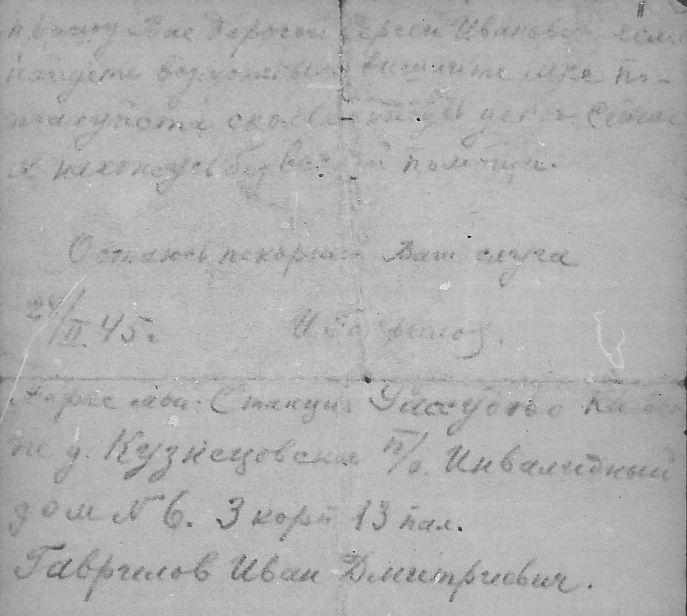 прошу Вас дорогой Сергей Иванович если
найдете возможным вышлите мне по-
жалуйста сколько нибуд денег Сейчас
я нахожусь без всякой помощи.
Остаюсь покорный Ваш слуга
24/II 45 г
Адрес мой: Станция
д. Кузнецовская п/о. Инвалидный
дом N 6. 3 корп 13 пал.
Гаврилов Иван Дмитриевич.